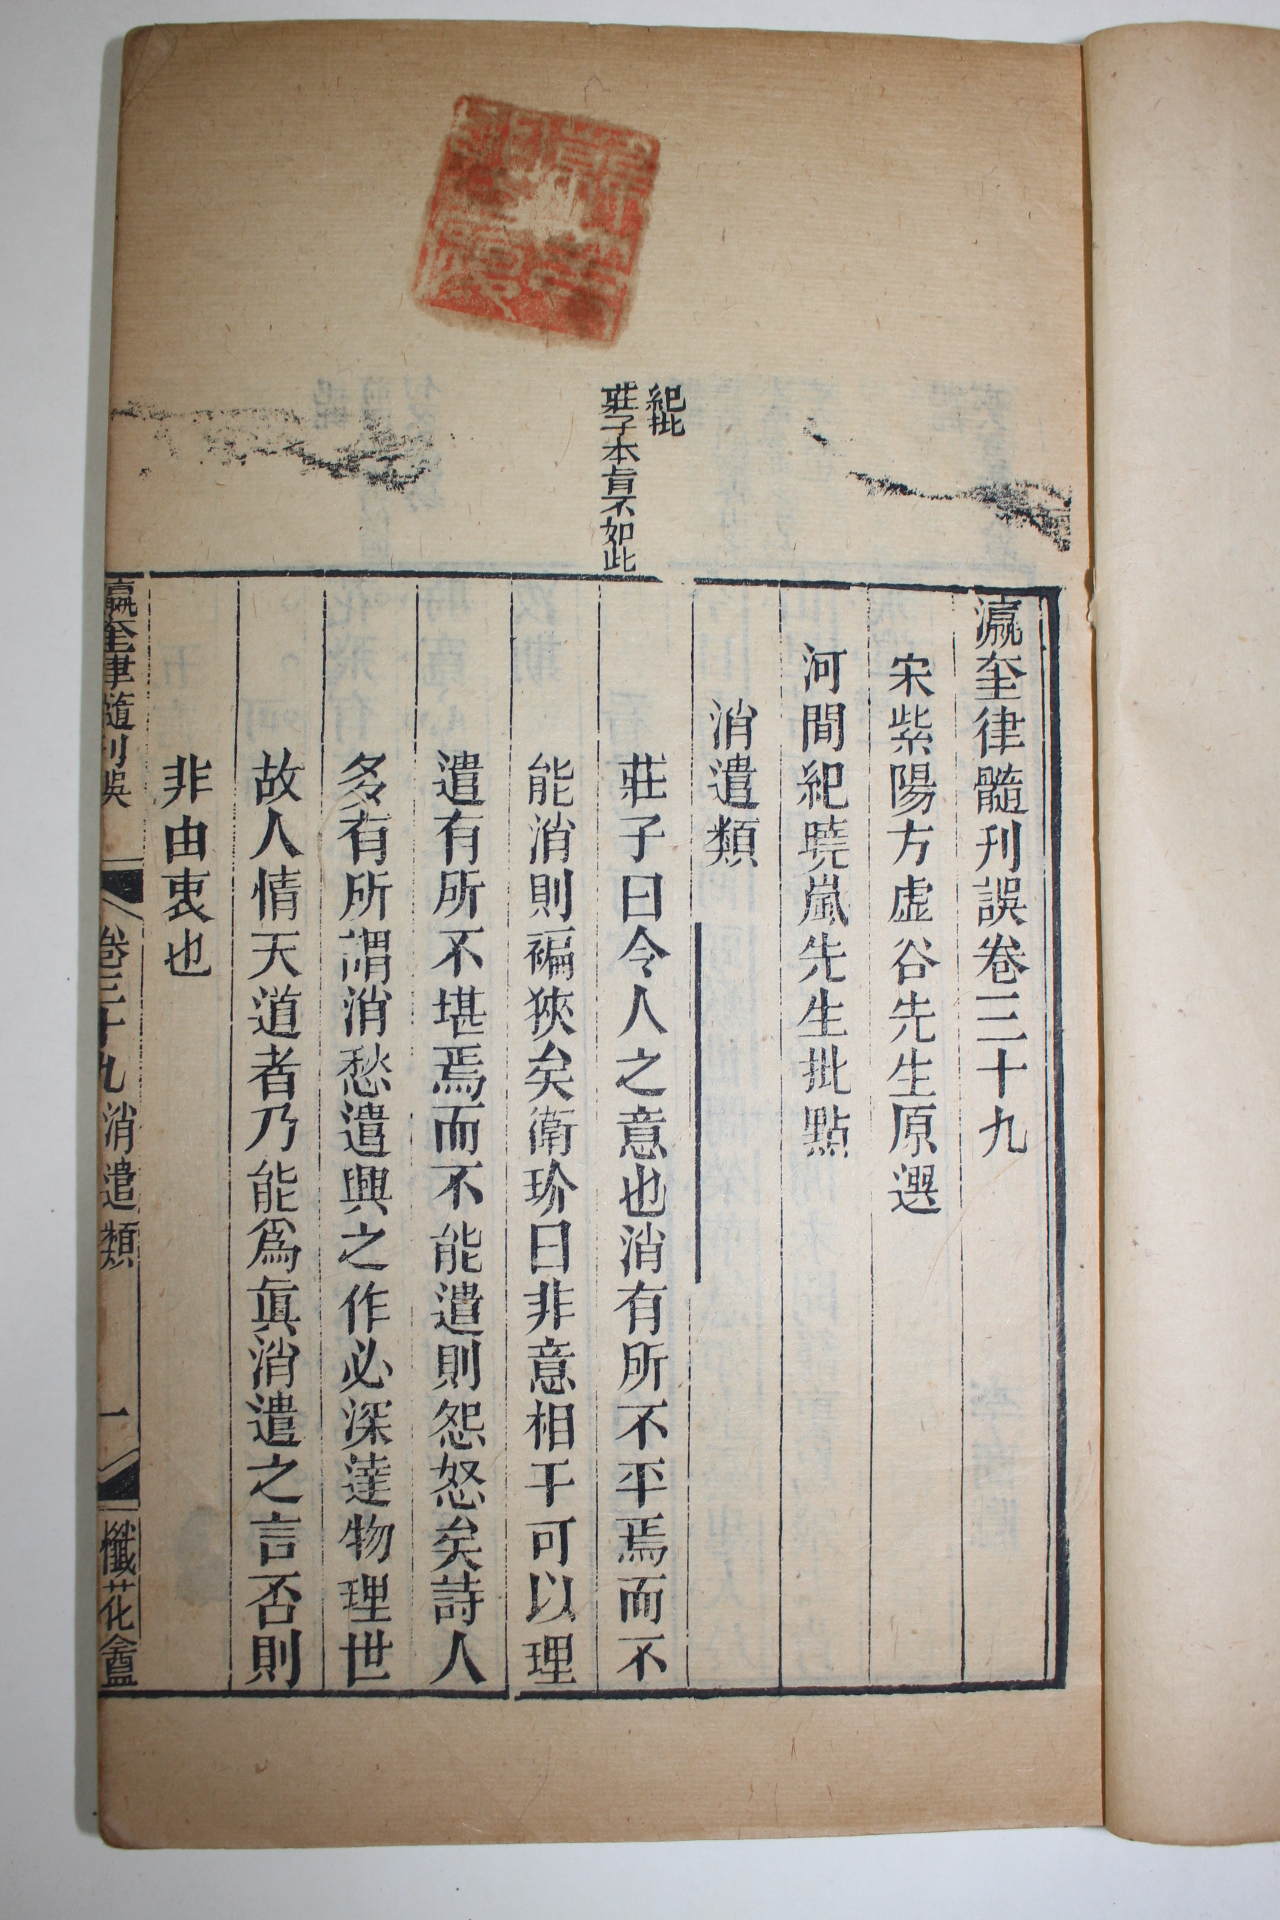 瀛奎律髓刊誤卷三十九
宋紫陽方虛谷先生原選
河間紀曉嵐先生批點
消遣類
莊子曰令人之意也消有所不平焉而不
能消則褊狹矣衛玠曰非意相干可以理
遣有所不堪焉而不能遣則怨怒矣詩人
多有所謂消愁遣興之作必深達物理世
故人情天道者乃能爲眞消遣之言否則
非由衷也
紀批
莊子本旨不如此
瀛奎律髓刊誤 卷三十九 消遣類 一 懺花盦